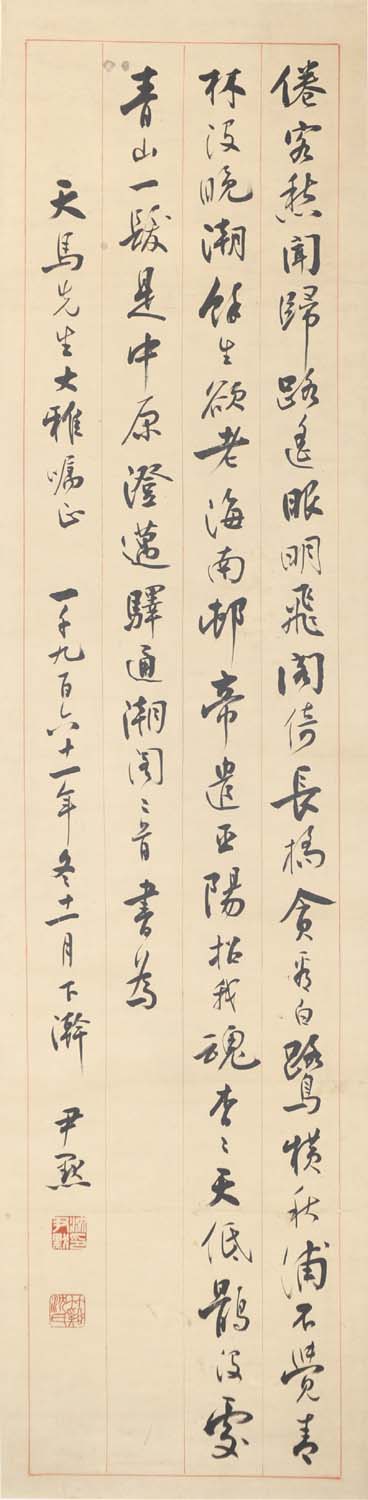 倦客愁聞歸路遙眼明飛閣倚長橋貪看白鷺橫秋浦不覺青
林沒晚潮餘生欲老海南邨帝遣巫陽招我魂杳〻天低鶻沒處
青山一髮是中原澄邁驛通潮閣二首書為
天馬先生大雅囑正 一千九百六十一年冬十一月下澣 尹默